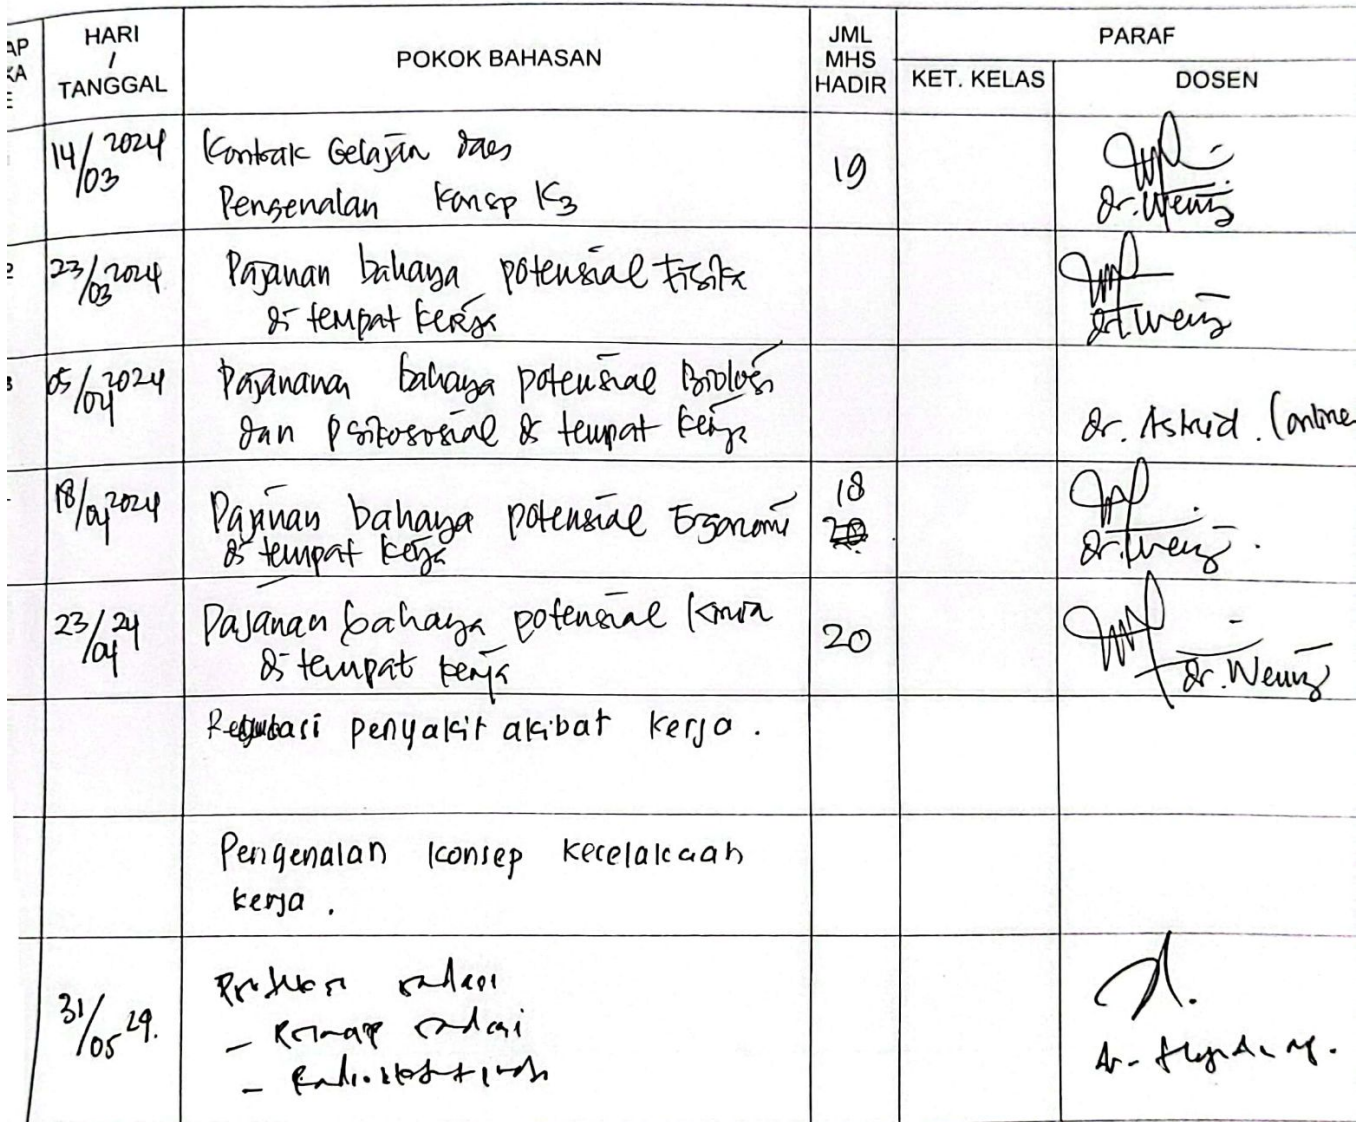 HARI
/
TANGGAL
POKOK BAHASAN
JML
MHS
HADIR
PARAF
KET. KELAS
DOSEN
14/03 2024
Kontrak
Pengenalan Konsep K3
19
dr. Weniz
23/03 2024
Pajanan bahaya potensial Fisika
di tempat kerja
dr. Weniz
05/04 2024
Pajanana bahaya potensial Biologi
dan Psikososial di tempat kerja
dr. Astrid. (online
18/04 2024
Pajanan bahaya potensial Ergonomi
di tempat kerja
18
20
dr. Weniz
23/04 24
Pajanan bahaya potensial Kimia
di tempat kerja
20
dr. Weniz
Regulasi penyakit akibat kerja.
Pengenalan konsep kecelakaan
kerja.
31/05 24.
Proteksi radiasi
- radiasi